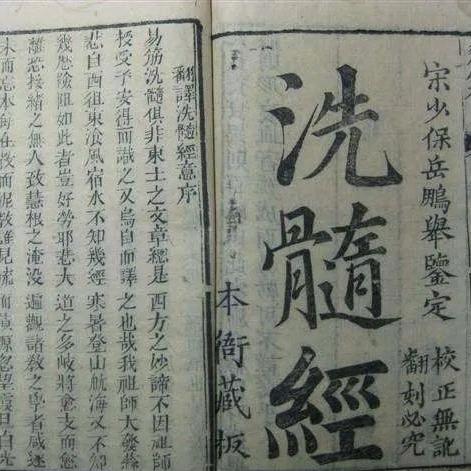 宋少保岳鵬舉鑒定
校正無訛
翻刻必究
洗髓經
本衙藏板
翻譯洗髓經意序
易筋洗髓俱非東土之文章總是西方之妙諦不因祖師
授受予安得而識之又烏自而譯之也哉我祖師大發慈
悲自西徂東飡風宿水不知幾經寒暑登山航海又不知
幾歷險阻如此者豈好勞耶悲大道之多岐將愈支而愈
離恐接緒之無人致慧根之淹没遍觀諸教之學者咸逐
末而忘本每在教而泥教誰見流而